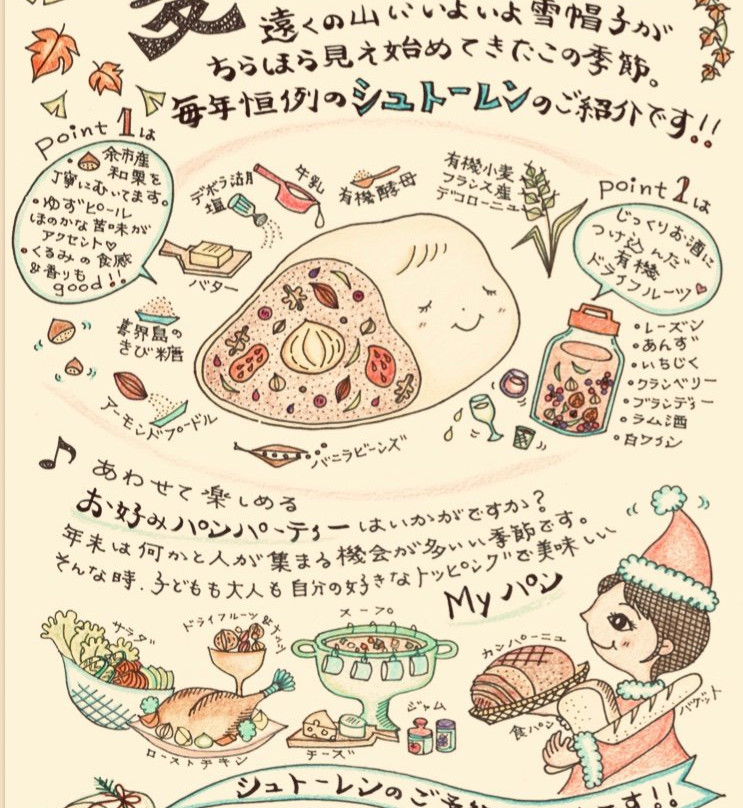 遠くの山にいよいよ雪帽子が
ちらほら見え始めてきたこの季節。
毎年恒例のシュトーレンのご紹介です!!
point 1は
余市産
和栗を
丁寧にむいてます。
・ゆずピール
ほのかな苦味が
アクセント♡
・くるみの食感
&香りも
good!!
デボラ湖
塩
牛乳
有機酵母
有機小麦
フランス産
デコローニュ
point 2は
じっくりお酒に
つけ込んだ
有機
ドライフルーツ♥
バター
喜界島の
きび糖
アーモンドプードル
バニラビーンズ
・レーズン
・あんず
・いちじく
・クランベリー
・ブランディー
・ラム酒
・白ワイン
♪ あわせて楽しめる
お好みパンパーティーはいかがですか?
年末は何かと人が集まる機会が多いい季節です。
そんな時、子どもも大人も自分の好きなトッピングで美味しい
My パン
サラダ
ドライフルーツ&ナッツ
スープ
カンパーニュ
ローストチキン
チーズ
ジャム
食パン
バゲット
シュトーレンのご予
です!!